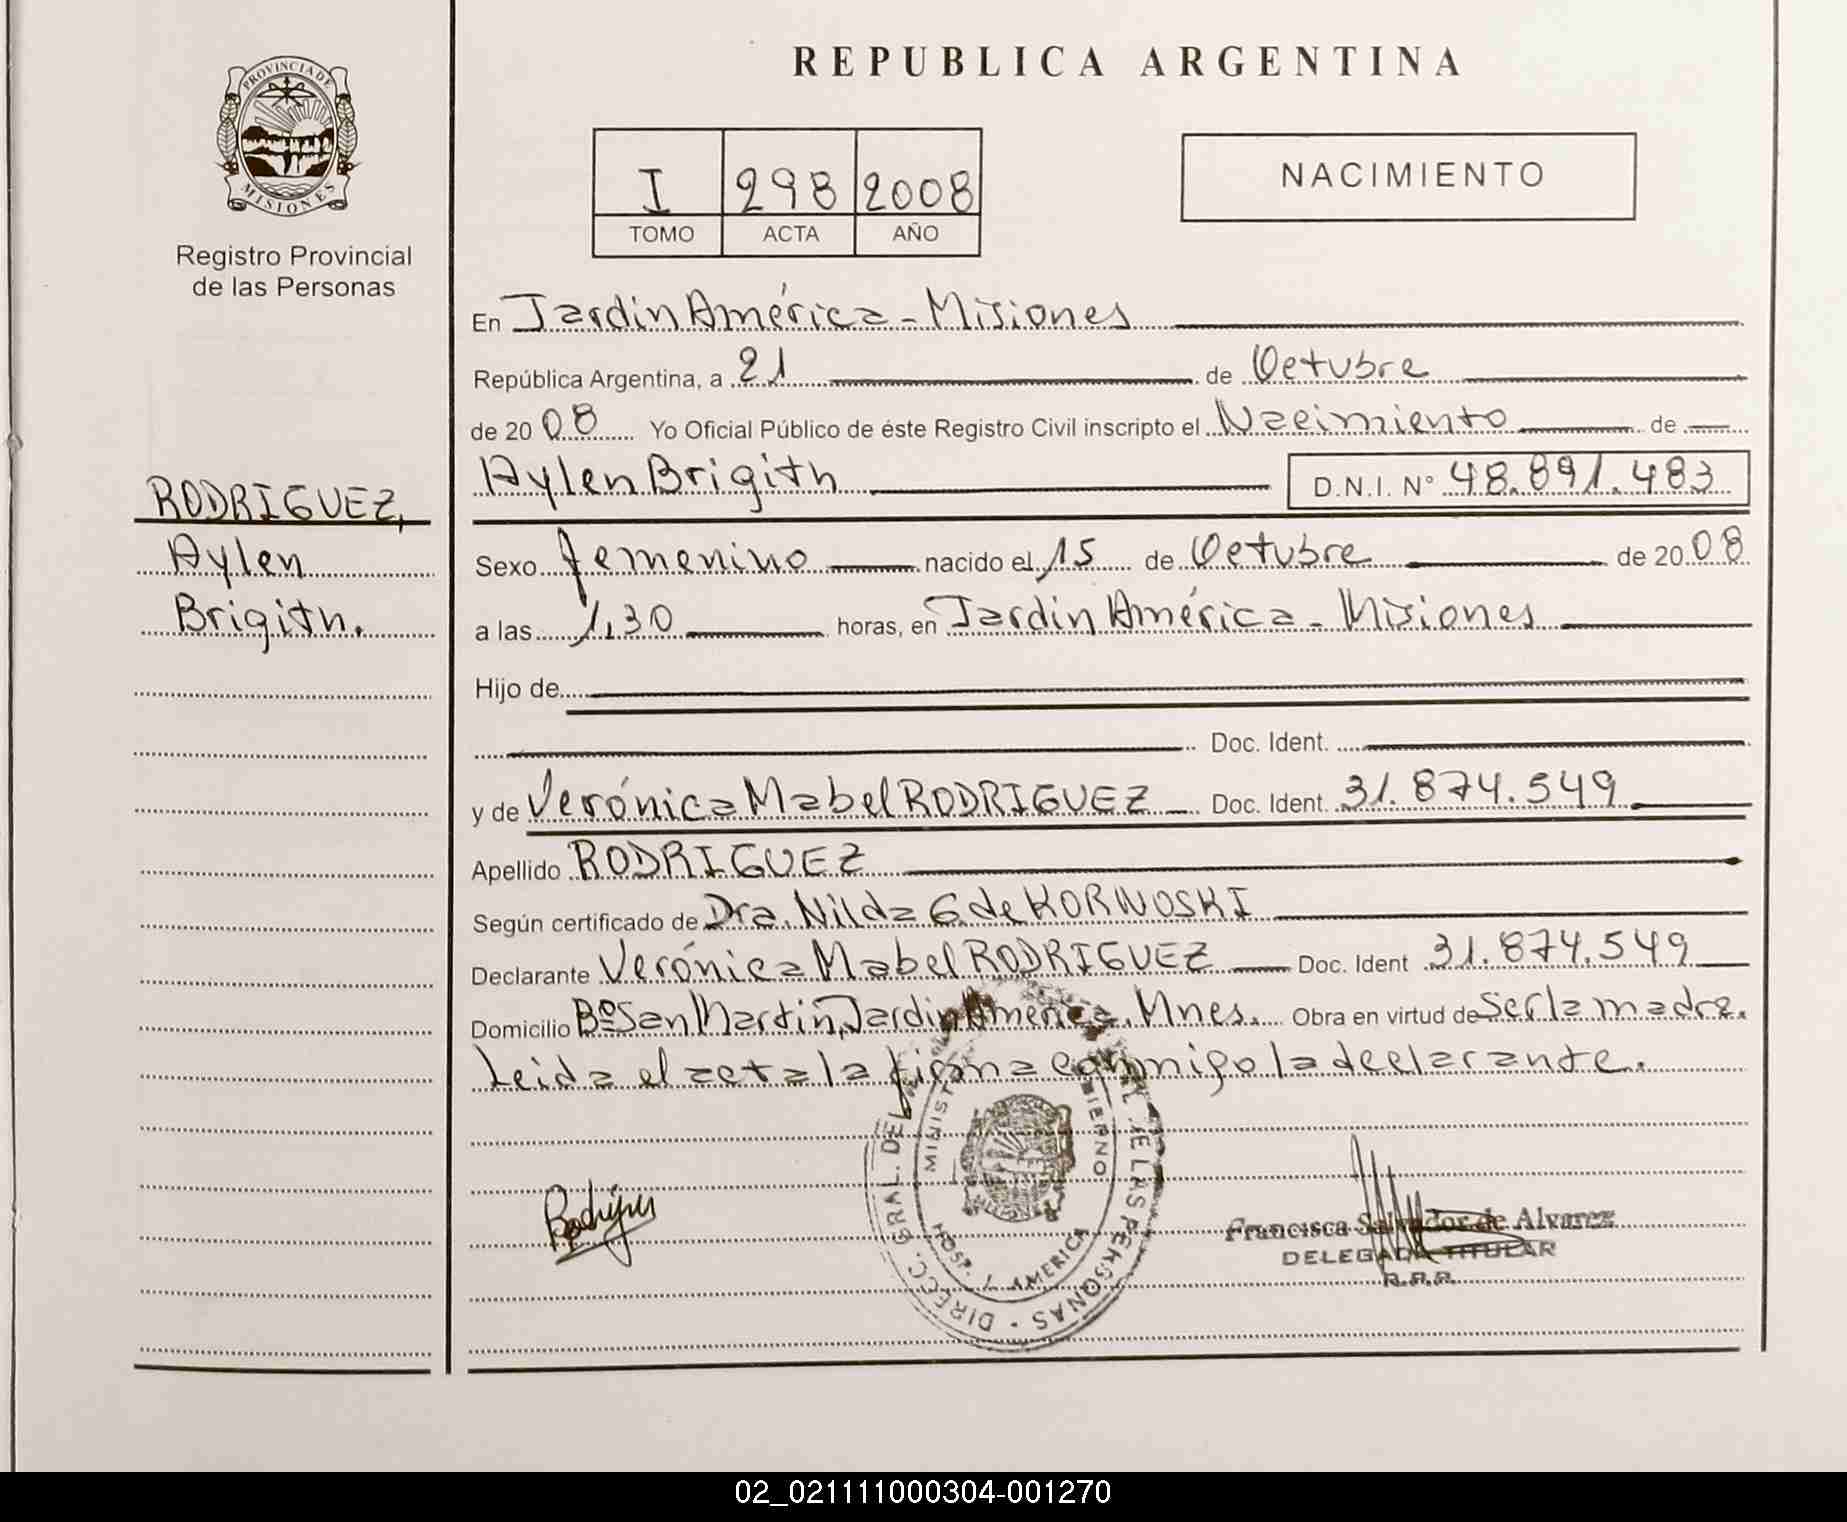 REPUBLICA ARGENTINA
PROVINCIA DE
MISIONES
Registro Provincial
de las Personas
I 298 2008
TOMO ACTA AÑO
NACIMIENTO
RODRIGUEZ,
Aylen
Brigith.
En Jardín América - Misiones
República Argentina, a 21 de Octubre
de 2008 Yo Oficial Público de éste Registro Civil inscripto el Nacimiento de
Aylen Brigith D.N.I. N° 48.891.483
Sexo femenino nacido el 15 de Octubre de 2008
a las 1,30 horas, en Jardín América - Misiones
Hijo de
Doc. Ident.
y de Verónica Mabel RODRIGUEZ Doc. Ident. 31.874.549
Apellido RODRIGUEZ
Según certificado de Dra. Nilda G. de KORNOSKI
Declarante Verónica Mabel RODRIGUEZ Doc. Ident 31.874.549
Domicilio Bº San Martín, Jardín América, Mnes. Obra en virtud de ser la madre.
Leida el acta la firma conmigo la declarante.
DIRECC. GRAL. DEL DE LAS PERSONAS
HOSP. J. AMERICA
Rodrigu
Francisca Salvador de Alvarez
DELEGADA TITULAR
R.P.P.
02_021111000304-001270